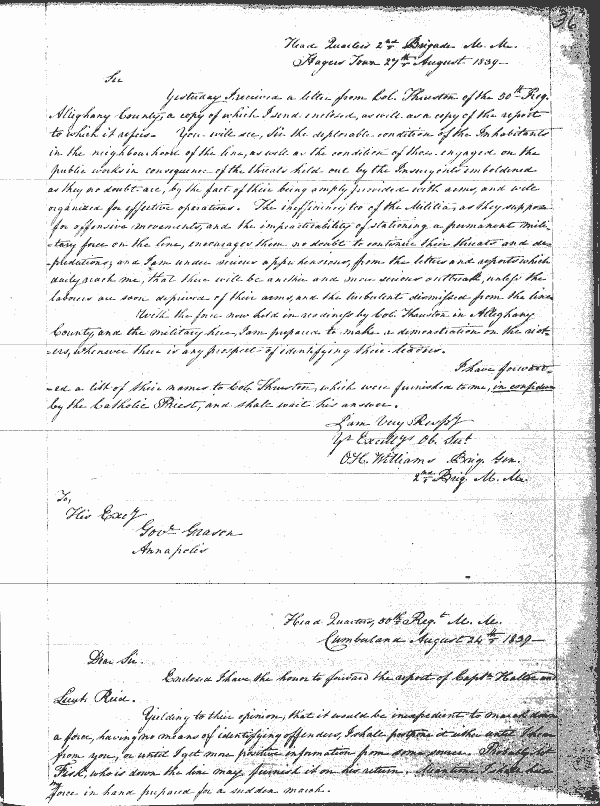 36
Head Quarters 2nd Brigade M. M.
Hagers Town 27th August 1839—
Sir
Yesterday I received a letter from Col. Thruston of the 50th Reg.
Alleghany County, a copy of which I send enclosed, as well as a copy of the report
to which it refers. You will see, Sir the deplorable condition of the Inhabitants
in the neighbourhood of the line, as well as the condition of those engaged on the
public works in consequence of the threats held out by the Insurgents emboldened
as they no doubt are, by the fact of their being amply provided with arms, and well
organized for effective operations. The inefficiency too of the Militia, as they suppose
for offensive movements, and the impracticability of stationing a permanent mili-
-tary force on the line, encourages them no doubt to continue their threats and de-
-predations, and I am under serious apprehensions, from the letters and reports which
daily reach me, that there will be another and more serious outbreak, unless the
labourers are soon deprived of their arms, and the turbulent dismissed from the line
With the force now held in readiness by Col. Thruston in Alleghany
County, and the military here, I am prepared to make a demonstration on the riot-
-ers, whenever there is any prospect of identifying their leaders.
I have forward-
-ed a list of their names to Col. Thruston, which were furnished to me, in confidence
by the Catholic Priest, and shall wait his answer.
I am Very Respy
Yr Excellys Ob. Sert
O. H. Williams Brig. Gen.
2nd Brig. M. M.
To,
His Excy
Govr Grason
Annapolis
Head Quarters, 50th Regt M. M.
Cumberland August 24th 1839—
Dear Sir.
Enclosed I have the honor to forward the report of Capts Haller and
Lieut. Reid.
Yielding to their opinion, that it would be inexpedient to march down
a force, having no means of identifying offenders, I shall postpone it either until I hear
from you, or until I get more positive information from some source. Probably
Fisk, who is down the line may furnish it on his return. Meantime I shall
force in hand prepared for a sudden march.